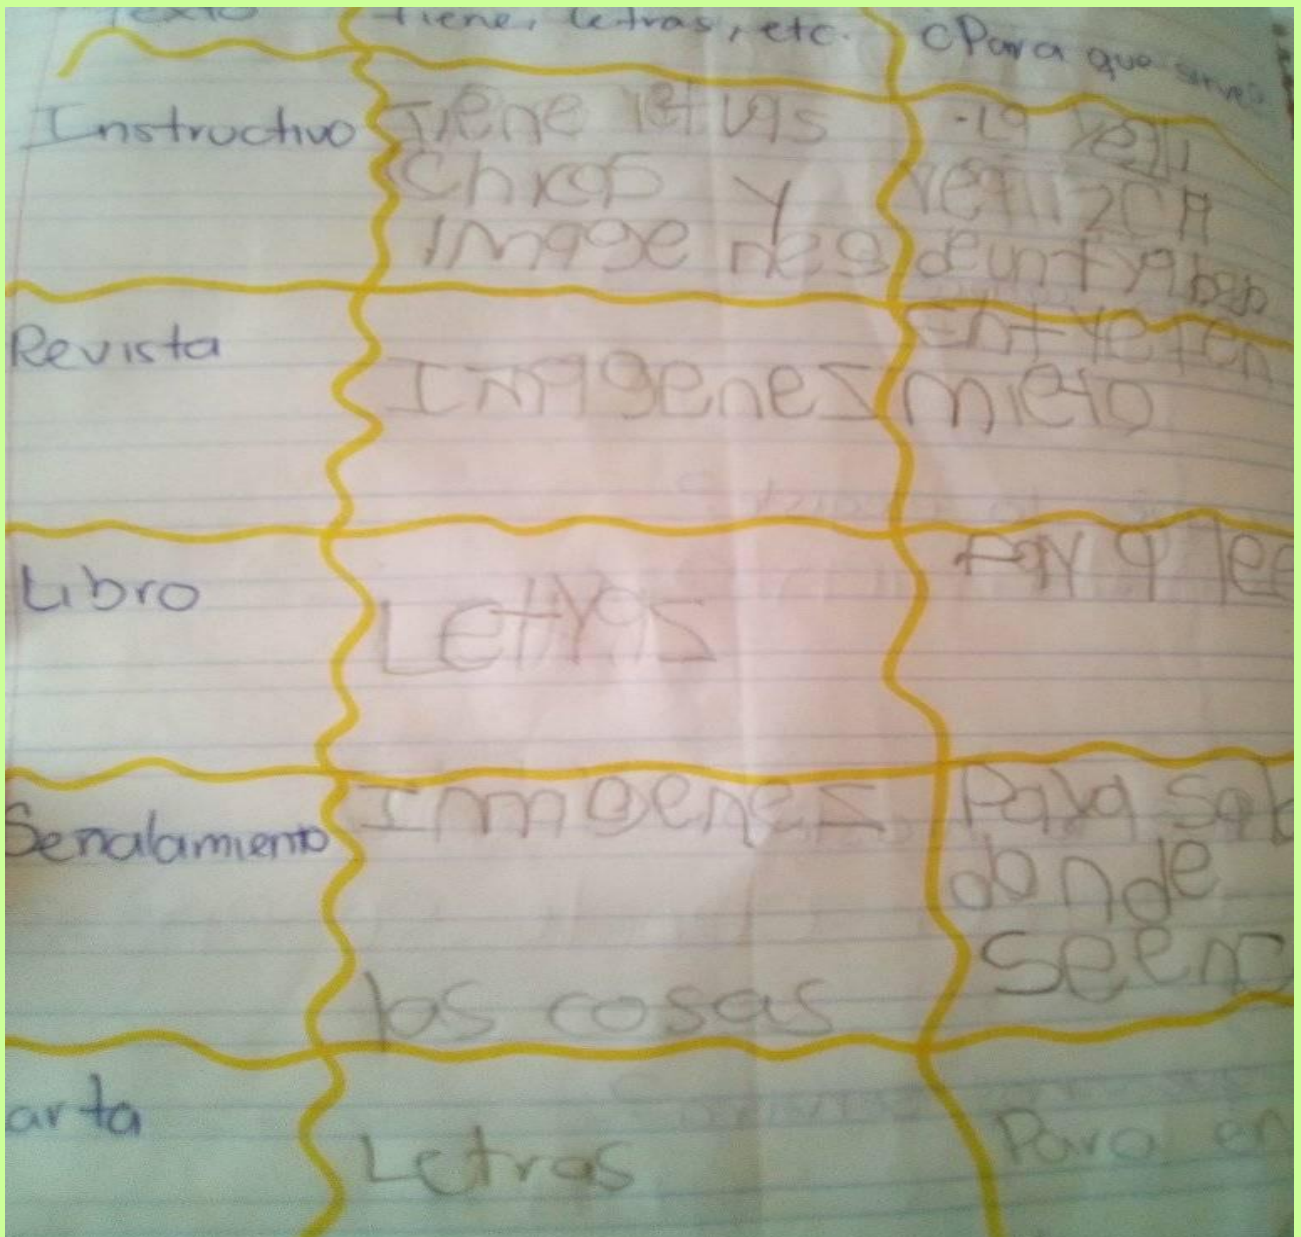 Texto
tiene, letras, etc.
¿Para que sirve?
Instructivo
Tiene letras
Chicas y
Imagenes
Revista
Imagenes
Entreten
mieto
Libro
Letras
Para lee
Señalamiento
Imagenes
las cosas
Para sab
donde
seenc
arta
Letras
Para en